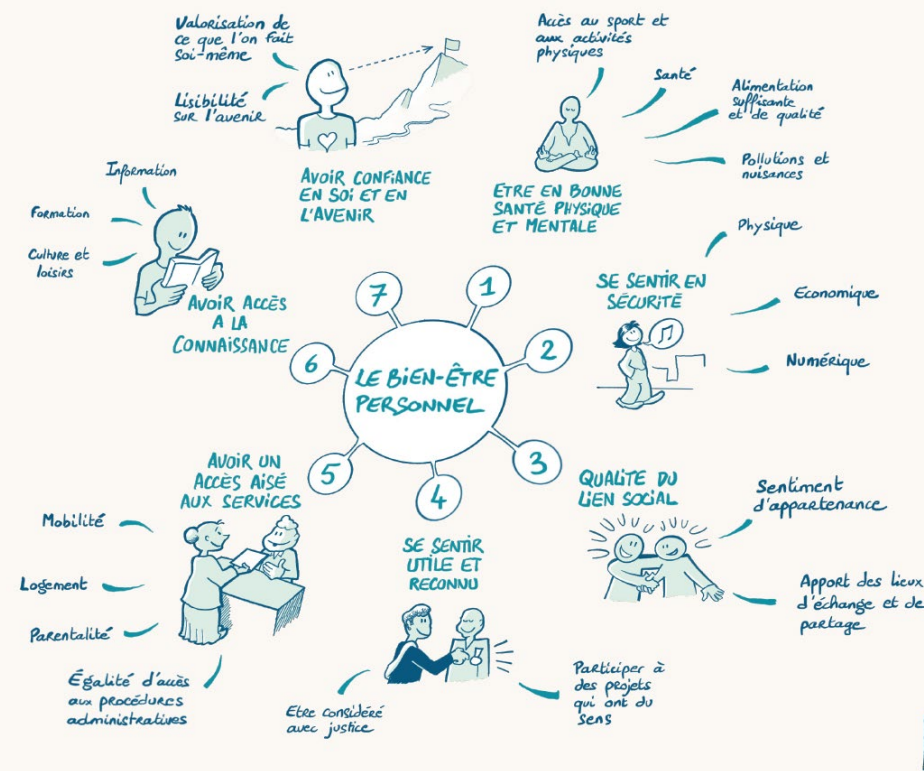 LE BIEN-ÊTRE
PERSONNEL
1
Accès au sport et
aux activités
physiques
Santé
Alimentation
suffisante
et de qualité
Pollutions et
nuisances
ETRE EN BONNE
SANTÉ PHYSIQUE
ET MENTALE
2
SE SENTIR EN
SÉCURITÉ
Physique
Economique
Numérique
3
QUALITE DU
LIEN SOCIAL
Sentiment
d'appartenance
Apport des lieux
d'échange et de
partage
4
SE SENTIR
UTILE ET
RECONNU
Etre considéré
avec justice
Participer à
des projets
qui ont du
sens
5
AVOIR UN
ACCÈS AISÉ
AUX SERVICES
Mobilité
Logement
Parentalité
Égalité d'accès
aux procédures
administratives
6
AVOIR ACCÈS
A LA
CONNAISSANCE
Information
Formation
Culture et
loisirs
7
AVOIR CONFIANCE
EN SOI ET EN
L'AVENIR
Valorisation de
ce que l'on fait
soi-même
Lisibilité
sur l'avenir